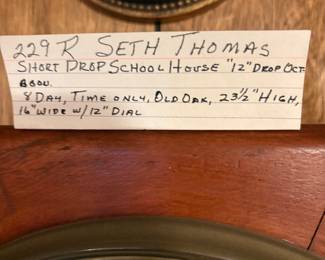 229 R SETH THOMAS
SHORT DROP SCHOOL HOUSE "12" DROP OCT-
AGON.
8 DAY, TIME ONLY, OLD OAK, 23½" HIGH,
16" WIDE W/12" DIAL